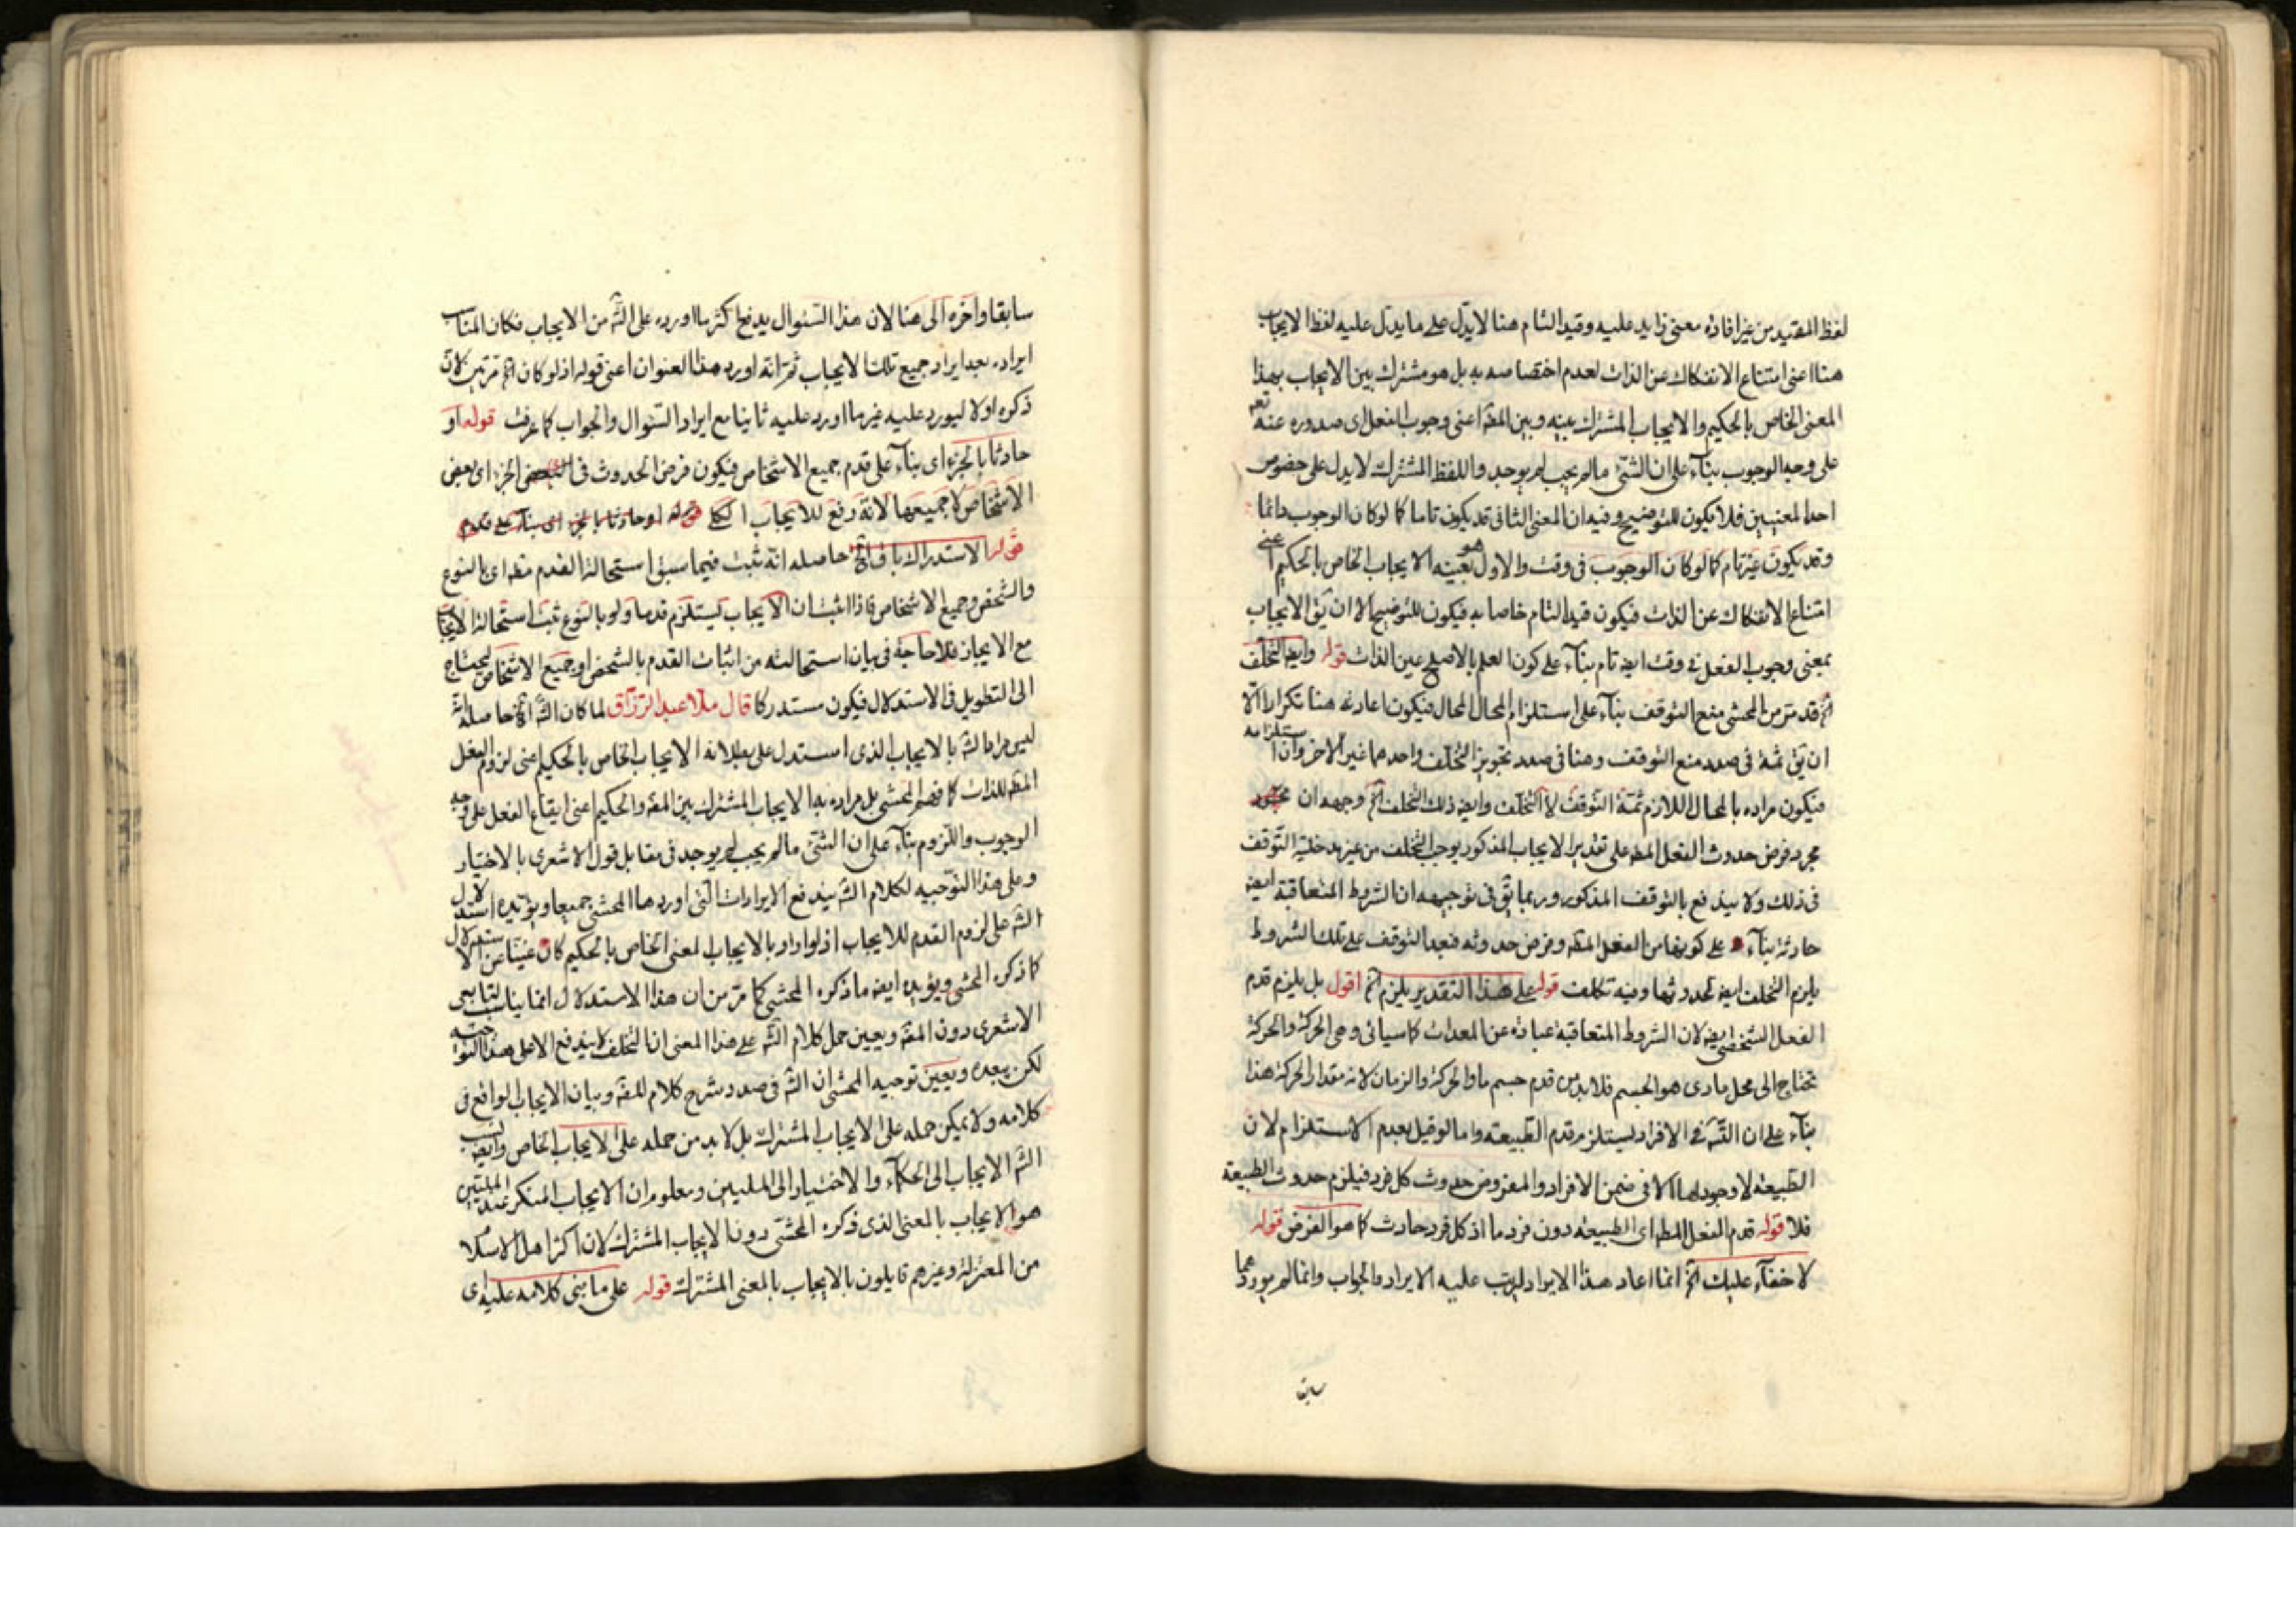 لفظ المقيد من غير افادة معنى زايد عليه وقيد التام هنا لا يدل على ما يدل عليه لفظ الايجاب
هنا اعنى امتناع الانفكاك عن الذات لعدم اختصاصه به بل هو مشترك بين الايجاب بهذا
المعنى الخاص بالحكيم والايجاب المشترك بينه وبين المصّ اعنى وجوب الفعل اى صدوره عنه تعم
على وجه الوجوب بناء على ان الشئ مالم يجب لم يوجد واللفظ المشترك لا يدل على خصوص
احد المعنيين فلا يكون للتوضيح وفيه ان المعنى الثانى قد يكون تاما كما لو كان الوجوب دائما
وقد يكون غير تام كما لو كان الوجوب فى وقت والاول هو بعينه الايجاب الخاص بالحكيم اعنى
امتناع الانفكاك عن الذات فيكون قيد التام خاصا به فيكون للتوضيح الا ان يق الايجاب
بمعنى وجوب الفعل فى وقت ايضا تام بناء على كون العلم بالاصلح عين الذات قوله وايضا التخلف
الخ قد مر من المحشى منع التوقف بناء على استلزام المحال المحال فيكون اعادته هنا تكرارا الا
ان يق ثمة فى صدد منع التوقف وهنا فى صدد تجويز التخلف واحدهما غير الاخر وان استلزامه
فيكون مراده بالمحال اللازم ثمة التوقف لا التخلف وايضا ذلك التخلف الخ وجهه ان
مجرد فرض حدوث الفعل المط على تقدير الايجاب المذكور يوجب التخلف من غير مدخلية التوقف
فى ذلك ولا يندفع بالتوقف المذكور وربما يق فى توجيهه ان الشروط المتعاقبة ايضا
حادثة بناء على كونها من الفعل المط وفرض حدوثه فبعد التوقف على تلك الشروط
يلزم التخلف ايضا لحدوثها وفيه تكلف قوله على هذا التقدير يلزم الخ اقول بل يلزم قدم
الفعل الشخصى ايضا لان الشروط المتعاقبة عبارة عن المعدات كما سيأتى وهى الحركة والحركة
تحتاج الى محل مادى هو الجسم فلا بد من قدم جسم ما والحركة والزمان لانه مقدار الحركة هذا
بناء على ان القدم فى الافراد ليستلزم قدم الطبيعة واما لو قيل بعدم الاستلزام لان
الطبيعة لا وجود لها الا فى ضمن الافراد والمفروض حدوث كل فرد فيلزم حدوث الطبيعة
فلا قوله قدم الفعل المط اى الطبيعة دون فرد ما اذ كل فرد حادث كما هو الفرض قوله
لا خفاء عليك الخ انما اعاد هذا الايراد ليرتب عليه الايراد والجواب وانما لم يوردهما
سابقا
سابقا واخره الى هنا لان هذا السئوال يدفع اكثر ما اورده على الشّ من الايجاب فكان المناسب
ايراده بعد ايراد جميع تلك الايجاب ثم انه اورد هذا العنوان اعنى قوله اذ لو كان الخ مرتين لان
ذكره اولا ليورد عليه غير ما اورد عليه ثانيا مع ايراد السئوال والجواب كما عرفت قوله او
حادثا بالجزء اى بناء على قدم جميع الاشخاص فيكون فرض الحدوث فى البعض الجزء اى بعض
الاشخاص لا جميعها لانه رفع للايجاب الكلى قوله او حادثا بالجزء اى بناء على قدم
قوله الاستدراك باق الخ حاصله انه ثبت فيما سبق استحالة القدم مط اى بالنوع
والشخص وجميع الاشخاص فاذا اثبت ان الايجاب يستلزم قدما ولو بالنوع ثبت استحالة الايجاب
مع الايجاز فلا حاجة فى بيان استحالته من اثبات القدم بالشخص او جميع الاشخاص ليحتاج
الى التطويل فى الاستدلال فيكون مستدركا قال ملا عبد الرزاق لما كان الشّ الخ حاصله انه
ليس مراد الشّ بالايجاب الذى استدل على بطلانه الايجاب الخاص بالحكيم اعنى لزوم الفعل
المط للذات كما فهم المحشى بل مراده به الايجاب المشترك بين المصّ والحكيم اعنى ايقاع الفعل على وجه
الوجوب واللزوم بناء على ان الشئ مالم يجب لم يوجد فى مقابل قول الاشعرى بالاختيار
وعلى هذا التوجيه لكلام الشّ يندفع الايرادات التى اوردها المحشى جميعا ويؤيده استدلال
الشّ على لزوم القدم للايجاب اذ لو اراد بالايجاب المعنى الخاص بالحكيم كان غنيا عن الاستدلال
كما ذكره المحشى ويؤيده ايضا ما ذكره المحشى كما مر من ان هذا الاستدلال انما يناسب لتابعى
الاشعرى دون المصّ ويعين حمل كلام الشّ على هذا المعنى ان التخلف لا يندفع الا على هذا التوجيه
لكن يبعده ويعين توجيه المحشى ان الشّ فى صدد شرح كلام المصّ وبيان الايجاب الواقع فى
كلامه ولا يمكن حمله على الايجاب المشترك بل لا بد من حمله على الايجاب الخاص وايضا نسب
الشّ الايجاب الى الحكماء والاختيار الى المليين ومعلوم ان الايجاب المنكر عند المليين
هو الايجاب بالمعنى الذى ذكره المحشى دون الايجاب المشترك لان اكثر اهل الاسلام
من المعتزلة وغيرهم قايلون بالايجاب بالمعنى المشترك قوله على ما بنى كلامه عليه اى